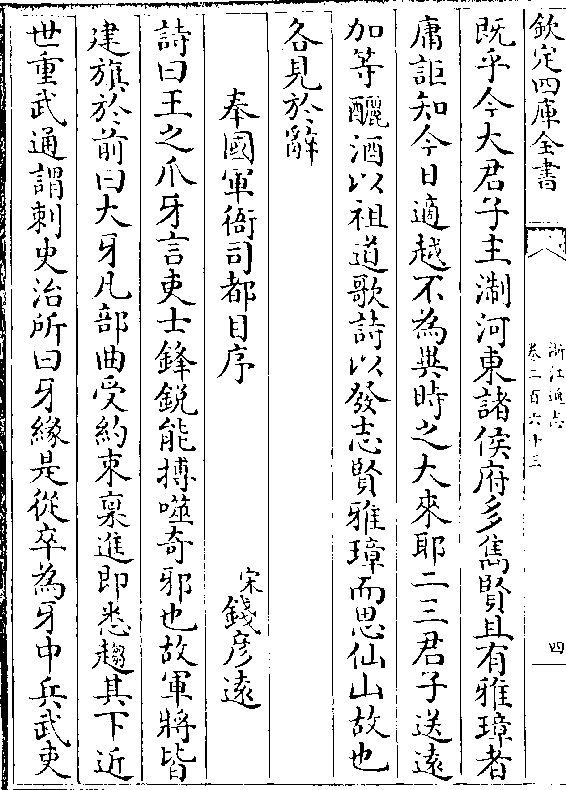 欽定四庫全書
浙江通志
卷二百六十三
四
既乎今大君子主淛河東諸侯府多雋賢且有雅璋者
庸詎知今日適越不為異時之大來耶二三君子送遠
加等釃酒以祖道歌詩以發志賢雅璋而思仙山故也
各見於辭
奉國軍衙司都目序
宋錢彦遠
詩曰王之爪牙言吏士鋒銳能搏噬奇邪也故軍將皆
建旗於前曰大牙凡部曲受約束稟進即悉趨其下近
世重武通謂刺史治所曰牙緣是從卒為牙中兵武吏